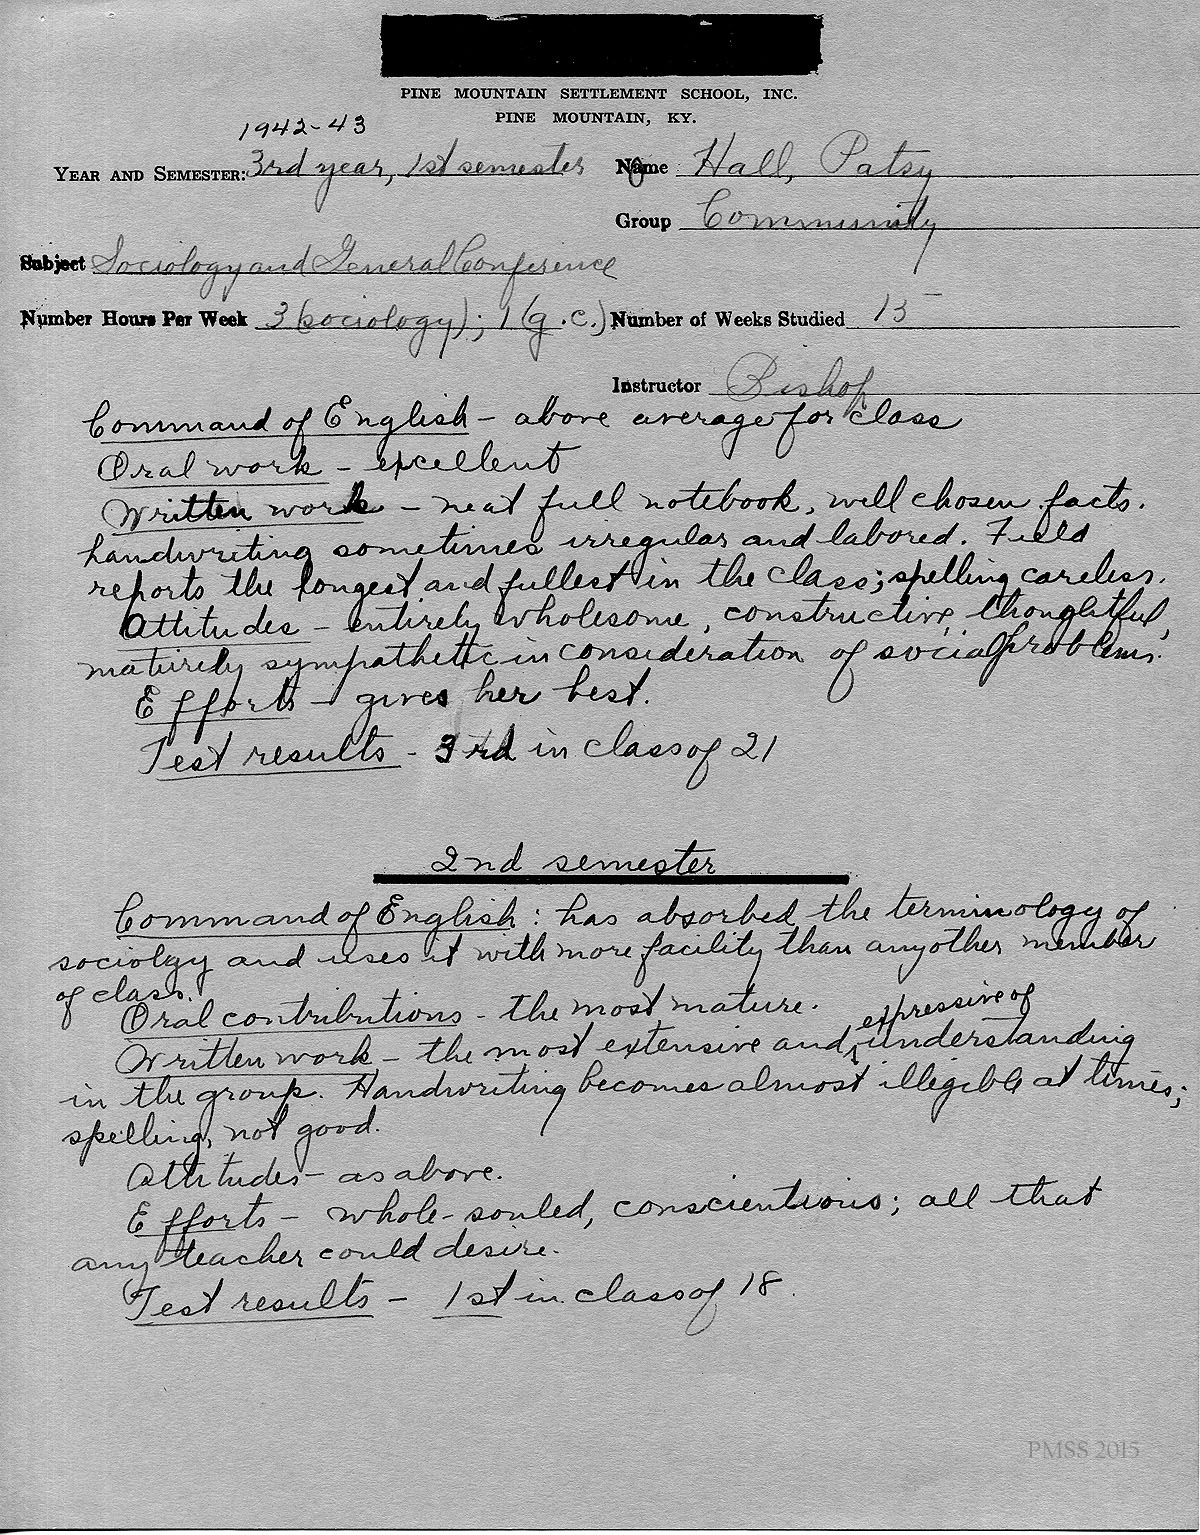 PINE MOUNTAIN SETTLEMENT SCHOOL, INC.
PINE MOUNTAIN, KY.
1942-43
YEAR AND SEMESTER: 3rd year, 1st semester Name Hall, Patsy
Group Community
Subject Sociology and General Conference
Number Hours Per Week 3 (sociology); 1 (g.c.) Number of Weeks Studied 15
Instructor Bishop
Command of English - above average for class
Oral work - excellent
Written work - neat full notebook, well chosen facts.
handwriting sometimes irregular and labored. Field
reports the longest and fullest in the class; spelling careless.
Attitudes - entirely wholesome, constructive, thoughtful,
maturely sympathetic in consideration of social problems.
Efforts - gives her best.
Test results - 3rd in class of 21
2nd semester
Command of English: has absorbed the terminology of
sociolgy and uses it with more facility than any other member
of class.
Oral contributions - the most mature.
expressive of
Written work - the most extensive and ^ understanding
in the group. Handwriting becomes almost illegible at times;
spelling, not good.
Attitudes - as above.
Efforts - whole-souled, conscientious; all that
any teacher could desire.
Test results - 1st in class of 18.
PMSS 2015